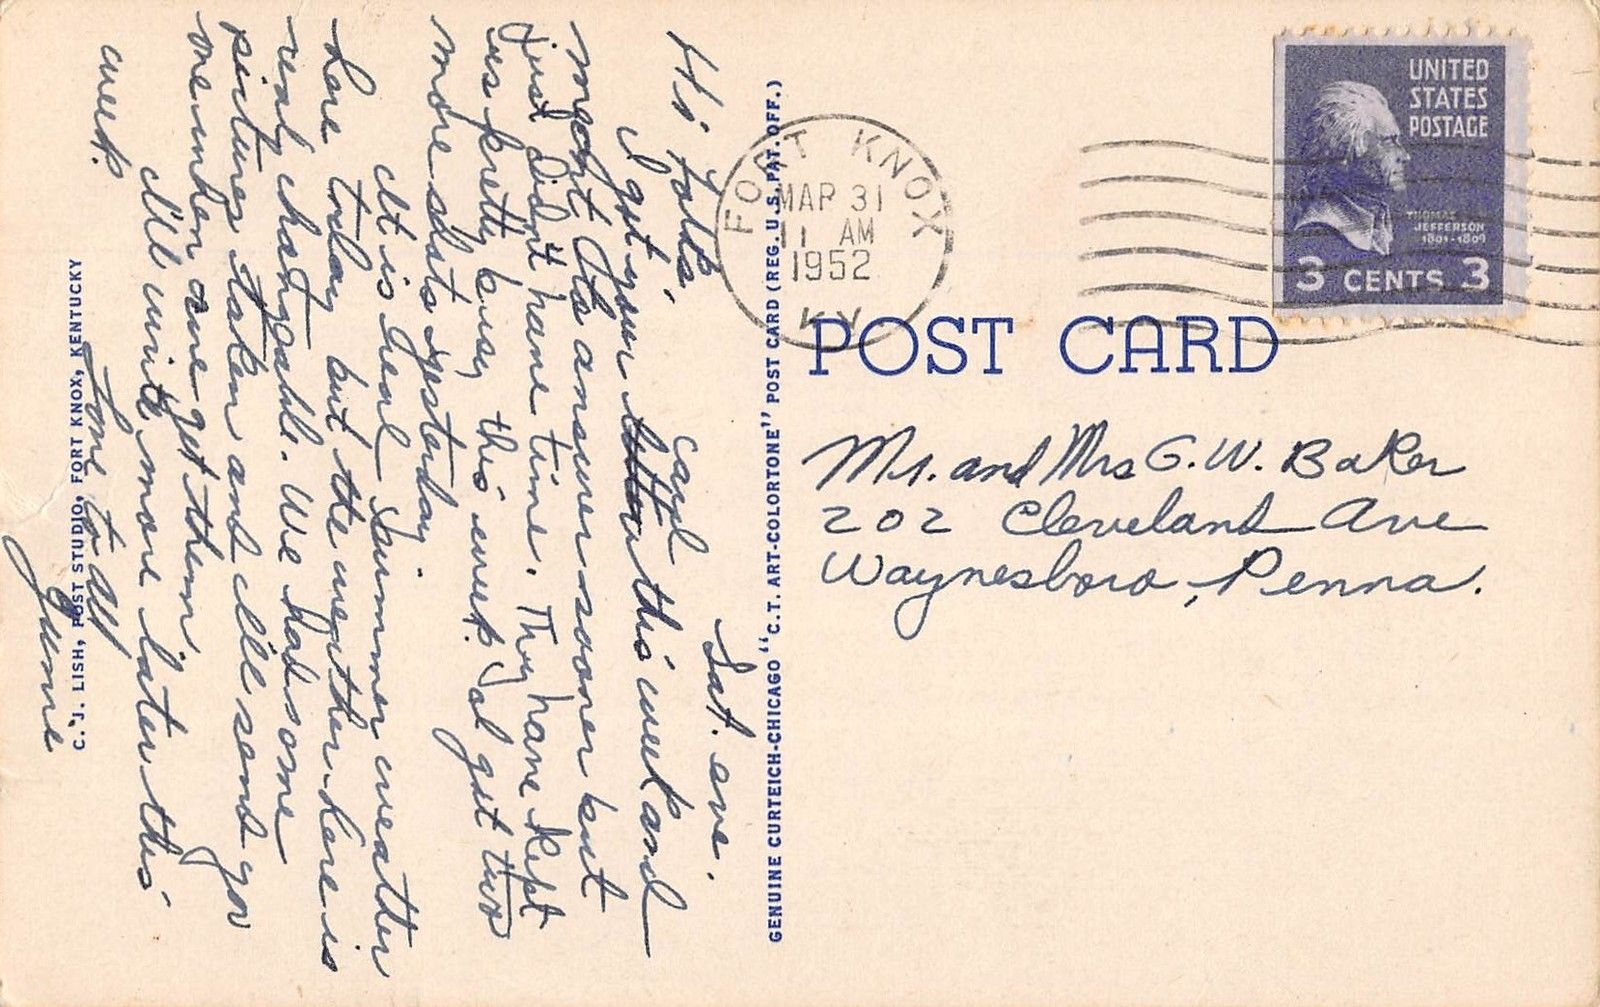 Sat. eve.
Hi Folks,
card
I got your letter this week and
meant to answer sooner but
just didn't have time. They have kept
us pretty busy this week. I got two
more shots yesterday.
It is real Summer weather
here today but the weather here is
real changeable. We had some
pictures taken and I'll send you
one when we get them
I'll write more later this
week.
Love to all
Gume
C. J. LISH, POST STUDIO, FORT KNOX, KENTUCKY
GENUINE CURTEICH-CHICAGO "C.T. ART-COLORTONE" POST CARD (REG. U.S. PAT. OFF.)
FORT KNOX
MAR 31
11 AM
1952
KY.
UNITED
STATES
POSTAGE
THOMAS
JEFFERSON
1801-1809
3 CENTS 3
POST CARD
Mr. and Mrs G. W. Baker
202 Cleveland Ave
Waynesboro, Penna.